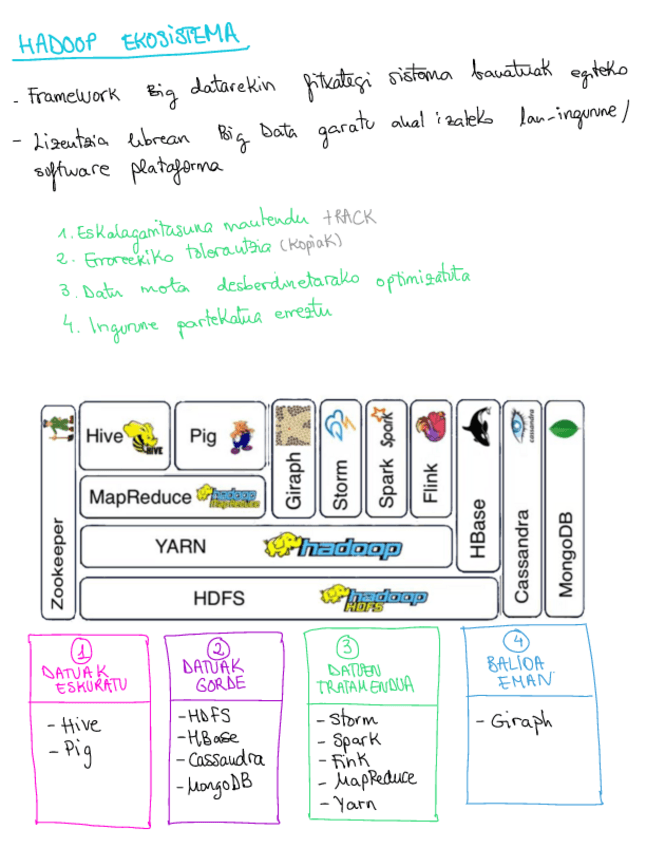 HADOOP EKOSISTEMA
- Framework Big datarekin fitxategi sistema banatuak egiteko
- Lizentzia librean Big Data garatu ahal izateko lan-ingurune/
software plataforma
1. Eskalagarritasuna mantendu +RACK
2. Erroreekiko tolerantzia (Kopiak)
3. Datu mota desberdinetarako optimizatuta
4. Ingurune partekatua erreztu
Zookeeper
Hive HIVE
Pig
Giraph
Storm
Spark Spark
Flink
HBase
Cassandra cassandra
MongoDB
MapReduce hadoop MapReduce
YARN hadoop
HDFS hadoop HDFS
1
DATUAK
ESKURATU
- Hive
- Pig
2
DATUAK
GORDE
- HDFS
- HBase
- Cassandra
- MongoDB
3
DATUEN
TRATAMENDUA
- Storm
- Spark
- Fink
- MapReduce
- Yarn
4
BALIOA
EMAN
- Giraph